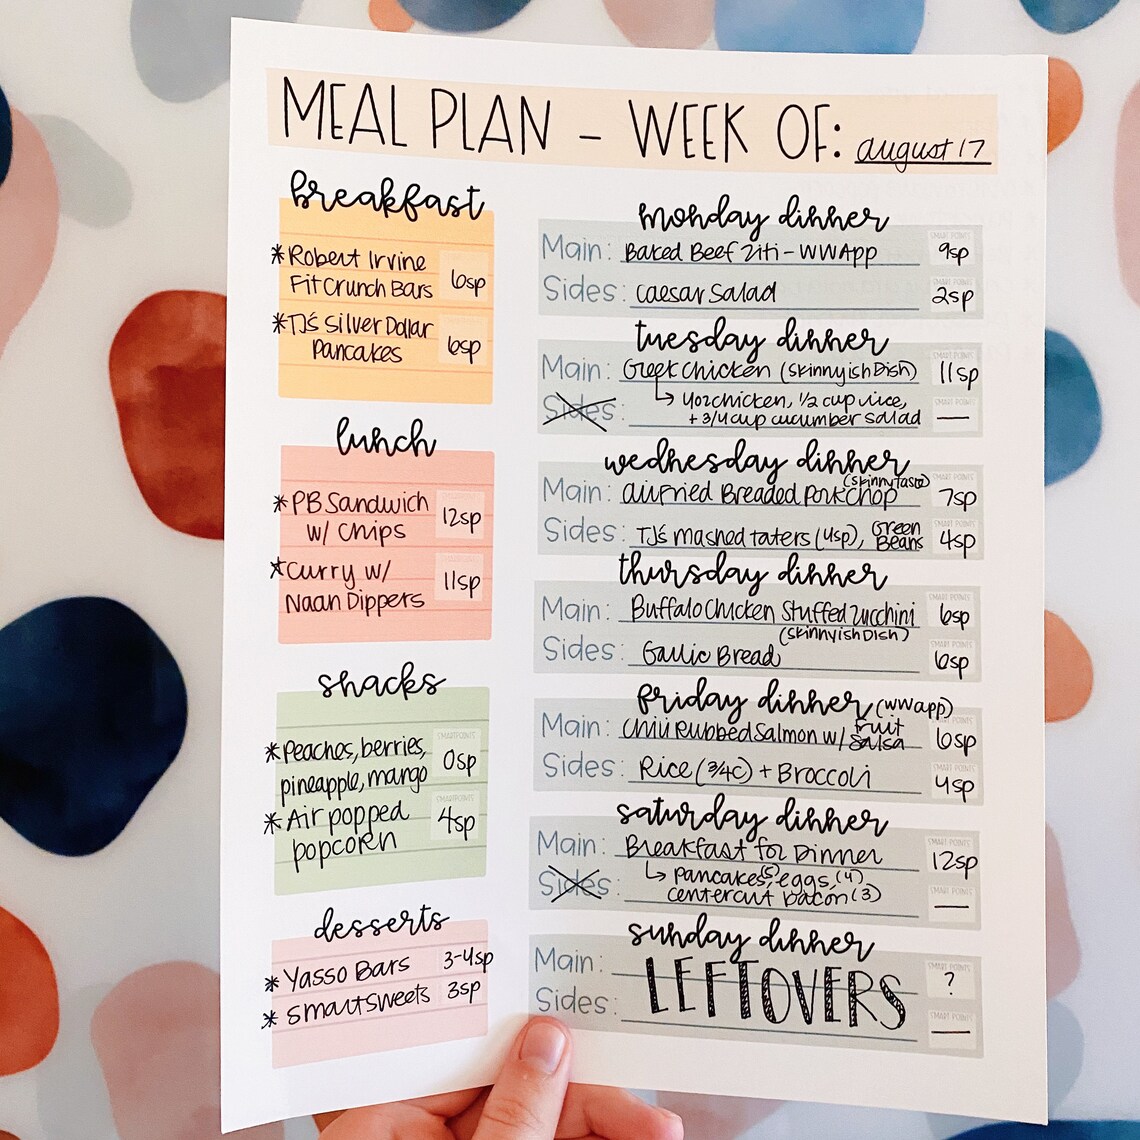 MEAL PLAN - WEEK OF: august 17
breakfast
*Robert Irvine
FitCrunch Bars 6sp
*TJ's Silver Dollar
Pancakes 6sp
lunch
*PB Sandwich
w/ Chips 12sp
*Curry w/
Naan Dippers 11sp
snacks
*Peaches, berries,
pineapple, mango
SMARTPOINTS
0sp
*Air popped
popcorn
SMARTPOINTS
4sp
desserts
*Yasso Bars 3-4sp
*Smartsweets 3sp
monday dinner
SMART POINTS
Main: Baked Beef Ziti - WW App 9sp
SMART POINTS
Sides: Caesar Salad 2sp
tuesday dinner
SMART POINTS
Main: Greek Chicken (SkinnyishDish) 11sp
↳ 4oz chicken, 1/2 cup rice,
SMART POINTS
Sides: + 3/4 cup cucumber salad —
wednesday dinner
(skinnytaste)
SMART POINTS
Main: Airfried Breaded Porkchop 7sp
SMART POINTS
Sides: TJ's mashed taters (4sp), Green
Beans 4sp
thursday dinner
SMART POINTS
Main: Buffalo Chicken Stuffed Zucchini 6sp
(SkinnyishDish)
SMART POINTS
Sides: Garlic Bread 6sp
friday dinner (ww app)
SMART POINTS
Main: Chili Rubbed Salmon w/ fruit
salsa 6sp
SMART POINTS
Sides: Rice (3/4c) + Broccoli 4sp
saturday dinner
SMART POINTS
Main: Breakfast for Dinner 12sp
↳ pancakes(5), eggs,(4)
SMART POINTS
Sides: centercut bacon (3) —
sunday dinner
SMART POINTS
Main: LEFTOVERS ?
SMART POINTS
Sides: —